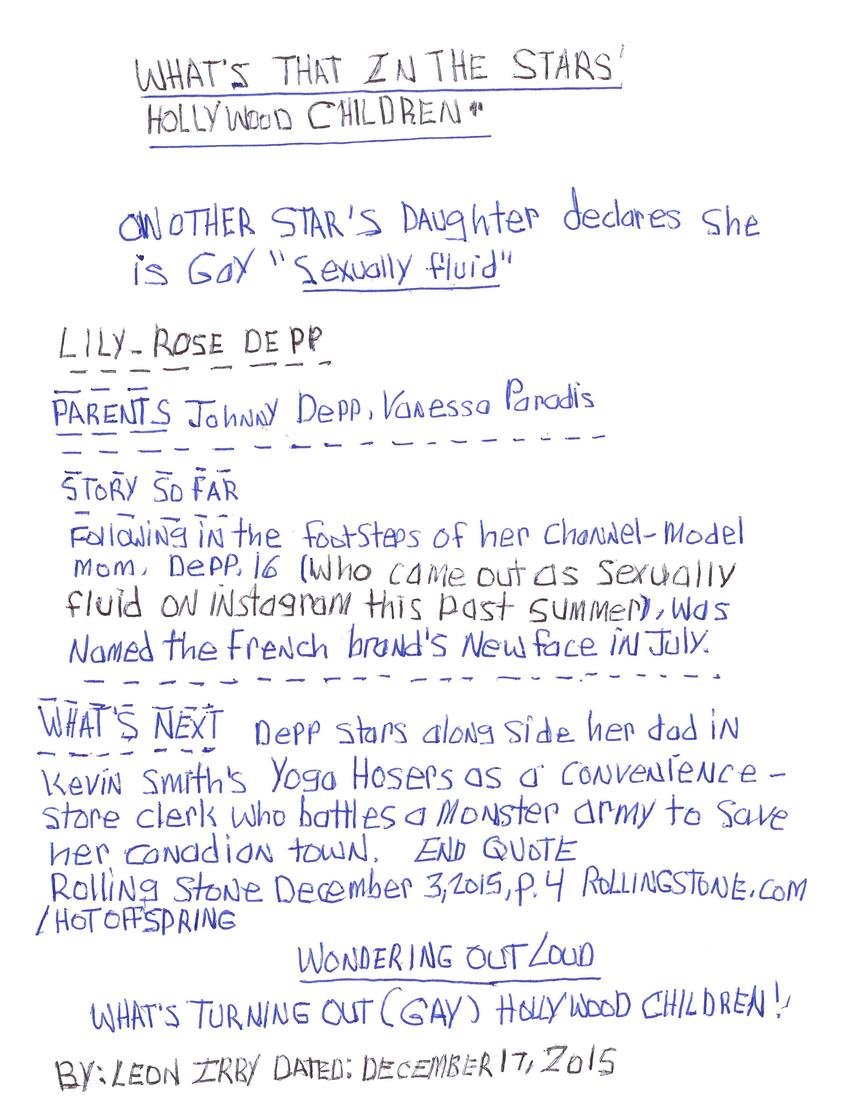 WHAT'S THAT IN THE STARS'
HOLLYWOOD CHILDREN"
ANOTHER STAR'S DAUghter declares She
is GaY "Sexually fluid"
LILY-ROSE DEPP
PARENTS JohNNY DePP, Vanessa Paradis
STORY SO FAR
Following in the footSteps of her ChaNNel-Model
mom, DePP, 16 (Who came out as Sexually
fluid ON iNstagram this past summer), was
Named the FreNch braNd's New face iN July.
WHAT'S NEXT DePP stars along side her dad iN
KeviN Smith's Yoga Hosers as a CONveNieNce-
store clerk who battles a MONster army to Save
her caNadiaN towN. END QUOTE
RolliNg StoNe December 3, 2015, p. 4 ROLLINGSTONE.COM
/HOTOFFSPRING
WONDERING OUT LOUD
WHAT'S TURNING OUT (GAY) HOLLYWOOD CHILDREN!
BY: LEON IRBY DATED: DECEMBER 17, 2015